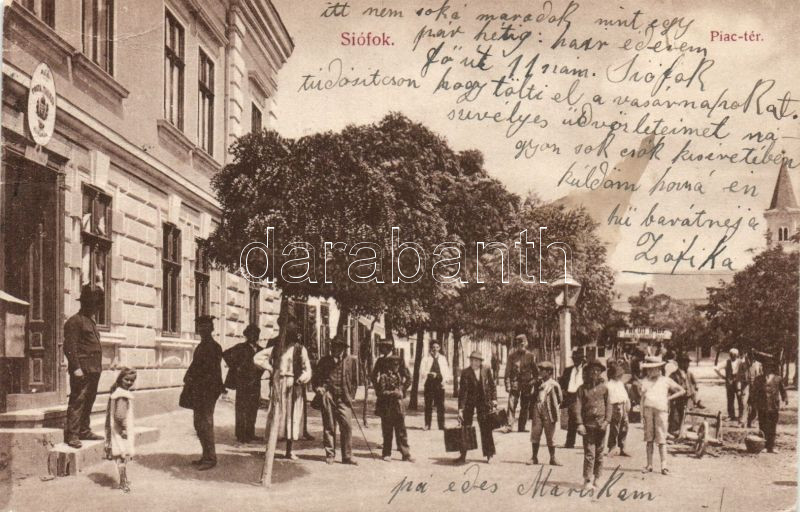 Siófok.
Piac-tér.
itt nem soká maradok mint egy
pár hétig: haír edesem
Fő út 11 szám. Siófok
tudósítcson hogy tölti el a vasárnapokat.
szivélyes üdvözleteimet na
gyon sok csók kiséretében
küldöm hozzá en
hü barátneja
Zsófika
darabanth
pá edes Mariskám